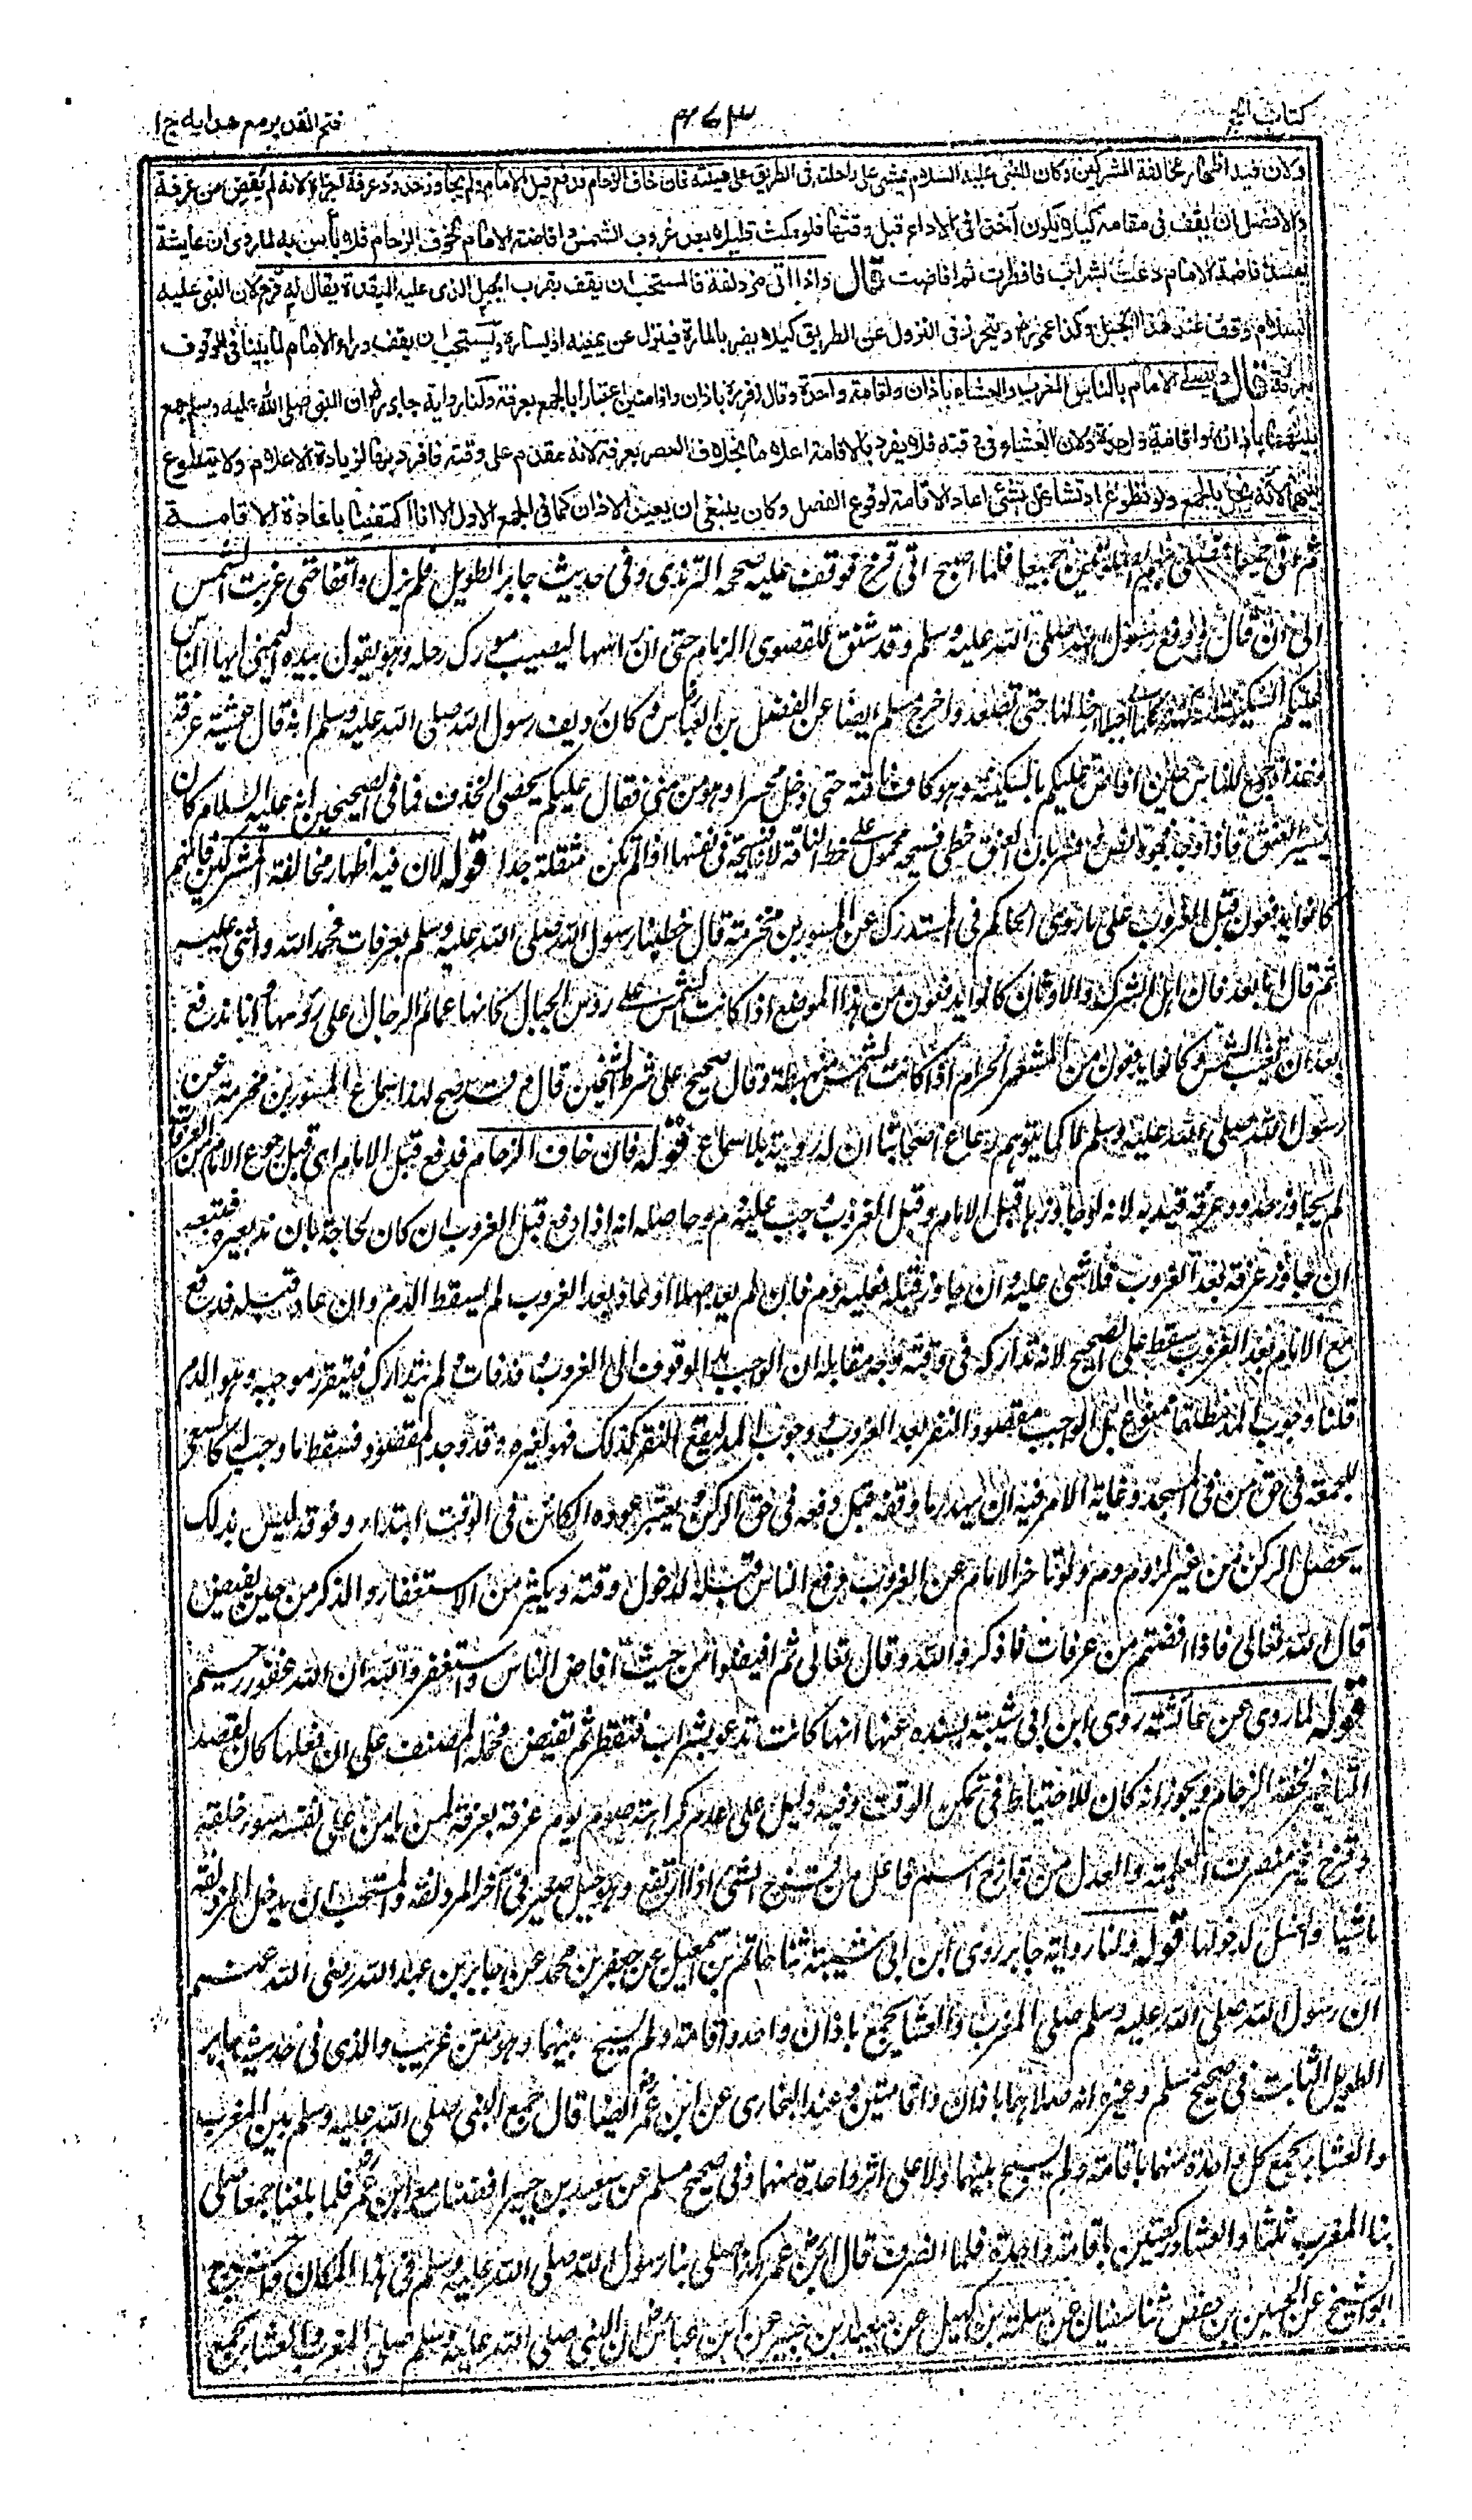 كتاب الحج
٣٧٣
فتح القدير مع هدايه ج ا
ولان فيه اظهار مخالفة المشركين وكان النبى عليه السلام يمشى على راحلته فى الطريق على هينته فان خاف الزحام فدفع قبل الامام ولم يجاوز حدود عرفة اجزاه لانه لم يفض من عرفة
والافضل ان يقف فى مقامه كيلا يكون آخذا فى الاداء قبل وقتها فلو مكث قليلا بعد غروب الشمس وافاضة الامام لخوف الزحام فلا بأس به لما روى ان عايشة
بعد افاضة الامام دعت بشراب فافطرت ثم افاضت قال واذا اتى مزدلفة فالمستحب ان يقف بقرب الجبل الذى عليه الميقدة يقال له قزح لان النبى عليه
السلام وقف عند هذا الجبل وكذا عمر رض ويتحرز فى النزول عن الطريق كيلا يضر بالمارة فينزل عن يمينه او يساره ويستحب ان يقف وراء الامام لما بينا فى الوقوف
بعرفة قال ويصلى الامام بالناس المغرب والعشاء باذان واقامة واحدة وقال زفر رح باذان واقامتين اعتبارا بالجمع بعرفة ولنا رواية جابر رض ان النبى صلى الله عليه وسلم جمع
بينهما باذان واقامة واحدة ولان العشاء فى وقته فلا يفرد بالاقامة اعلاما بخلاف العصر بعرفة لانه مقدم على وقته فافرد بها لزيادة الاعلام ولا يتطوع
بينهما لانه يخل بالجمع ولو تطوع او تشاغل بشئ اعاد الاقامة لوقوع الفصل وكان ينبغى ان يعيد الاذان كما فى الجمع الاول الا انا اكتفينا باعادة الاقامة
ثم اتى جمعا فصلى بهم الصلاتين جميعا فلما اصبح اتى قزح فوقف عليه صححه الترمذى وفى حديث جابر الطويل فلم يزل واقفا حتى غربت الشمس
الى ان قال ودفع رسول الله صلى الله عليه وسلم وقد شنق للقصوى الزمام حتى ان راسها ليصيب مورك رحله وهو يقول بيده اليمنى ايها الناس
السكينة السكينة كلما اتى جبلا ارخى لها حتى تصعد واخرج مسلم ايضا عن الفضل بن العباس رض وكان رديف رسول الله صلى الله عليه وسلم انه قال عشية عرفة
وغداة جمع للناس حين عليكم بالسكينة وهو كاف ناقته حتى دخل محسرا وهو من منى فقال عليكم بحصى الخذف فما فى الصحيحين انه عليه السلام كان
يسير العنق فاذا وجد فجوة نص العنق خطى فسيحة محمول على خط الناقة لانها فسيحة فى نفسها اذا لم تكن مثقلة جدا قوله لان فيه اظهار مخالفة المشركين فانهم
كانوا يدفعون قبل الغروب على ما روى الحاكم فى المستدرك عن المسور بن مخرمة قال خطبنا رسول الله صلى الله عليه وسلم بعرفات فحمد الله واثنى عليه
ثم قال اما بعد فان اهل الشرك والاوثان كانوا يدفعون من هذا الموضع اذا كانت الشمس على رؤس الجبال كانها عمائم الرجال على رؤسها وانا ندفع
بعد ان تغيب الشمس وكانوا يدفعون من المشعر الحرام اذا كانت الشمس منبسطة وقال صحيح على شرط الشيخين قال وقد صح لهذا سماع المسور بن مخرمة عن
رسول الله صلى الله عليه وسلم لا كما يتوهم رعاع اصحابنا ان له روية بلا سماع قوله فان خاف الزحام فدفع قبل الامام اى قبل رجوع الامام من العرفات
لم يجاوز حدود عرفة قيد به لانه لو جاوزها قبل الامام وقبل الغروب وجب عليه دم وحاصله انه اذا دفع قبل الغروب ان كان لحاجة بان ند بعيره فتبعه
ان جاوز عرفة بعد الغروب فلا شئ عليه وان جاوز قبله فعليه دم فان لم يعد اصلا او عاد بعد الغروب لم يسقط الدم وان عاد قبله فدفع
مع الامام بعد الغروب سقط على الصحيح لانه تداركه فى وقته وجه مقابله ان الواجب مد الوقوف الى الغروب وقد فات ولم يتدارك فيتقرر موجبه وهو الدم
قلنا وجوب المد مطلقا ممنوع بل الواجب مقصودا النفر بعد الغروب ووجوب المد ليقع النفر كذلك فهو لغيره وقد وجد المقصود فسقط ما وجب له كالسعى
للجمعة فى حق من فى المسجد وغاية الامر فيه ان يهدر ما وقفه قبل دفعه فى حق الركن ويعتبر عوده الكائن فى الوقت ابتداء وقوفه اليس بذلك
يحصل الركن من غير لزوم دم ولو تاخر الامام عن الغروب دفع الناس قبله لدخول وقته ويكثر من الاستغفار والذكر من حين يفيض
قال الله تعالى فاذا افضتم من عرفات فاذكروا الله وقال تعالى ثم افيضوا من حيث افاض الناس واستغفروا الله ان الله غفور رحيم
قوله لما روى عن عائشة روى ابن ابى شيبة بسنده عنها انها كانت تدعو بشراب فتفطر ثم تفيض فحمله المصنف على ان فعلها كان لقصد
التاخير لخفة الزحام ويجوز انه كان للاحتياط فى تمكن الوقت وفيه دليل على عدم كراهة صوم يوم عرفة بعرفة لمن يامن على نفسه سوء خلقه
وقزح غير منصرف للعلمية والعدل من قازح اسم فاعل من قزح الشئ اذا ارتفع وهو جبل صغير فى آخر المزدلفة والمستحب ان يدخل المزدلفة
ماشيا وان يغتسل لدخولها قوله ولنا رواية جابر روى ابن ابى شيبة ثنا حاتم بن اسمعيل عن جعفر بن محمد عن جابر بن عبد الله رضى الله عنهم
ان رسول الله صلى الله عليه وسلم صلى المغرب والعشاء بجمع باذان واحد واقامة ولم يسبح بينهما وهو متن غريب والذى فى حديث جابر
الطويل الثابت فى صحيح مسلم وغيره انه صلاهما باذان واقامتين وعند البخارى عن ابن عمر رض ايضا قال جمع النبى صلى الله عليه وسلم بين المغرب
والعشاء بجمع كل واحدة منهما باقامة ولم يسبح بينهما ولا على اثر واحدة منهما وفى صحيح مسلم عن سعيد بن جبير افضنا مع ابن عمر رض فلما بلغنا جمعا صلى
بنا المغرب ثلثا والعشاء ركعتين باقامة واحدة فلما انصرف قال ابن عمر هكذا صلى بنا رسول الله صلى الله عليه وسلم فى هذا المكان واخرج
ابو الشيخ عن الحسين بن حفص ثنا سفيان عن سلمة بن كهيل عن سعيد بن جبير عن ابن عباس رض ان النبى صلى الله عليه وسلم صلى المغرب والعشاء بجمع